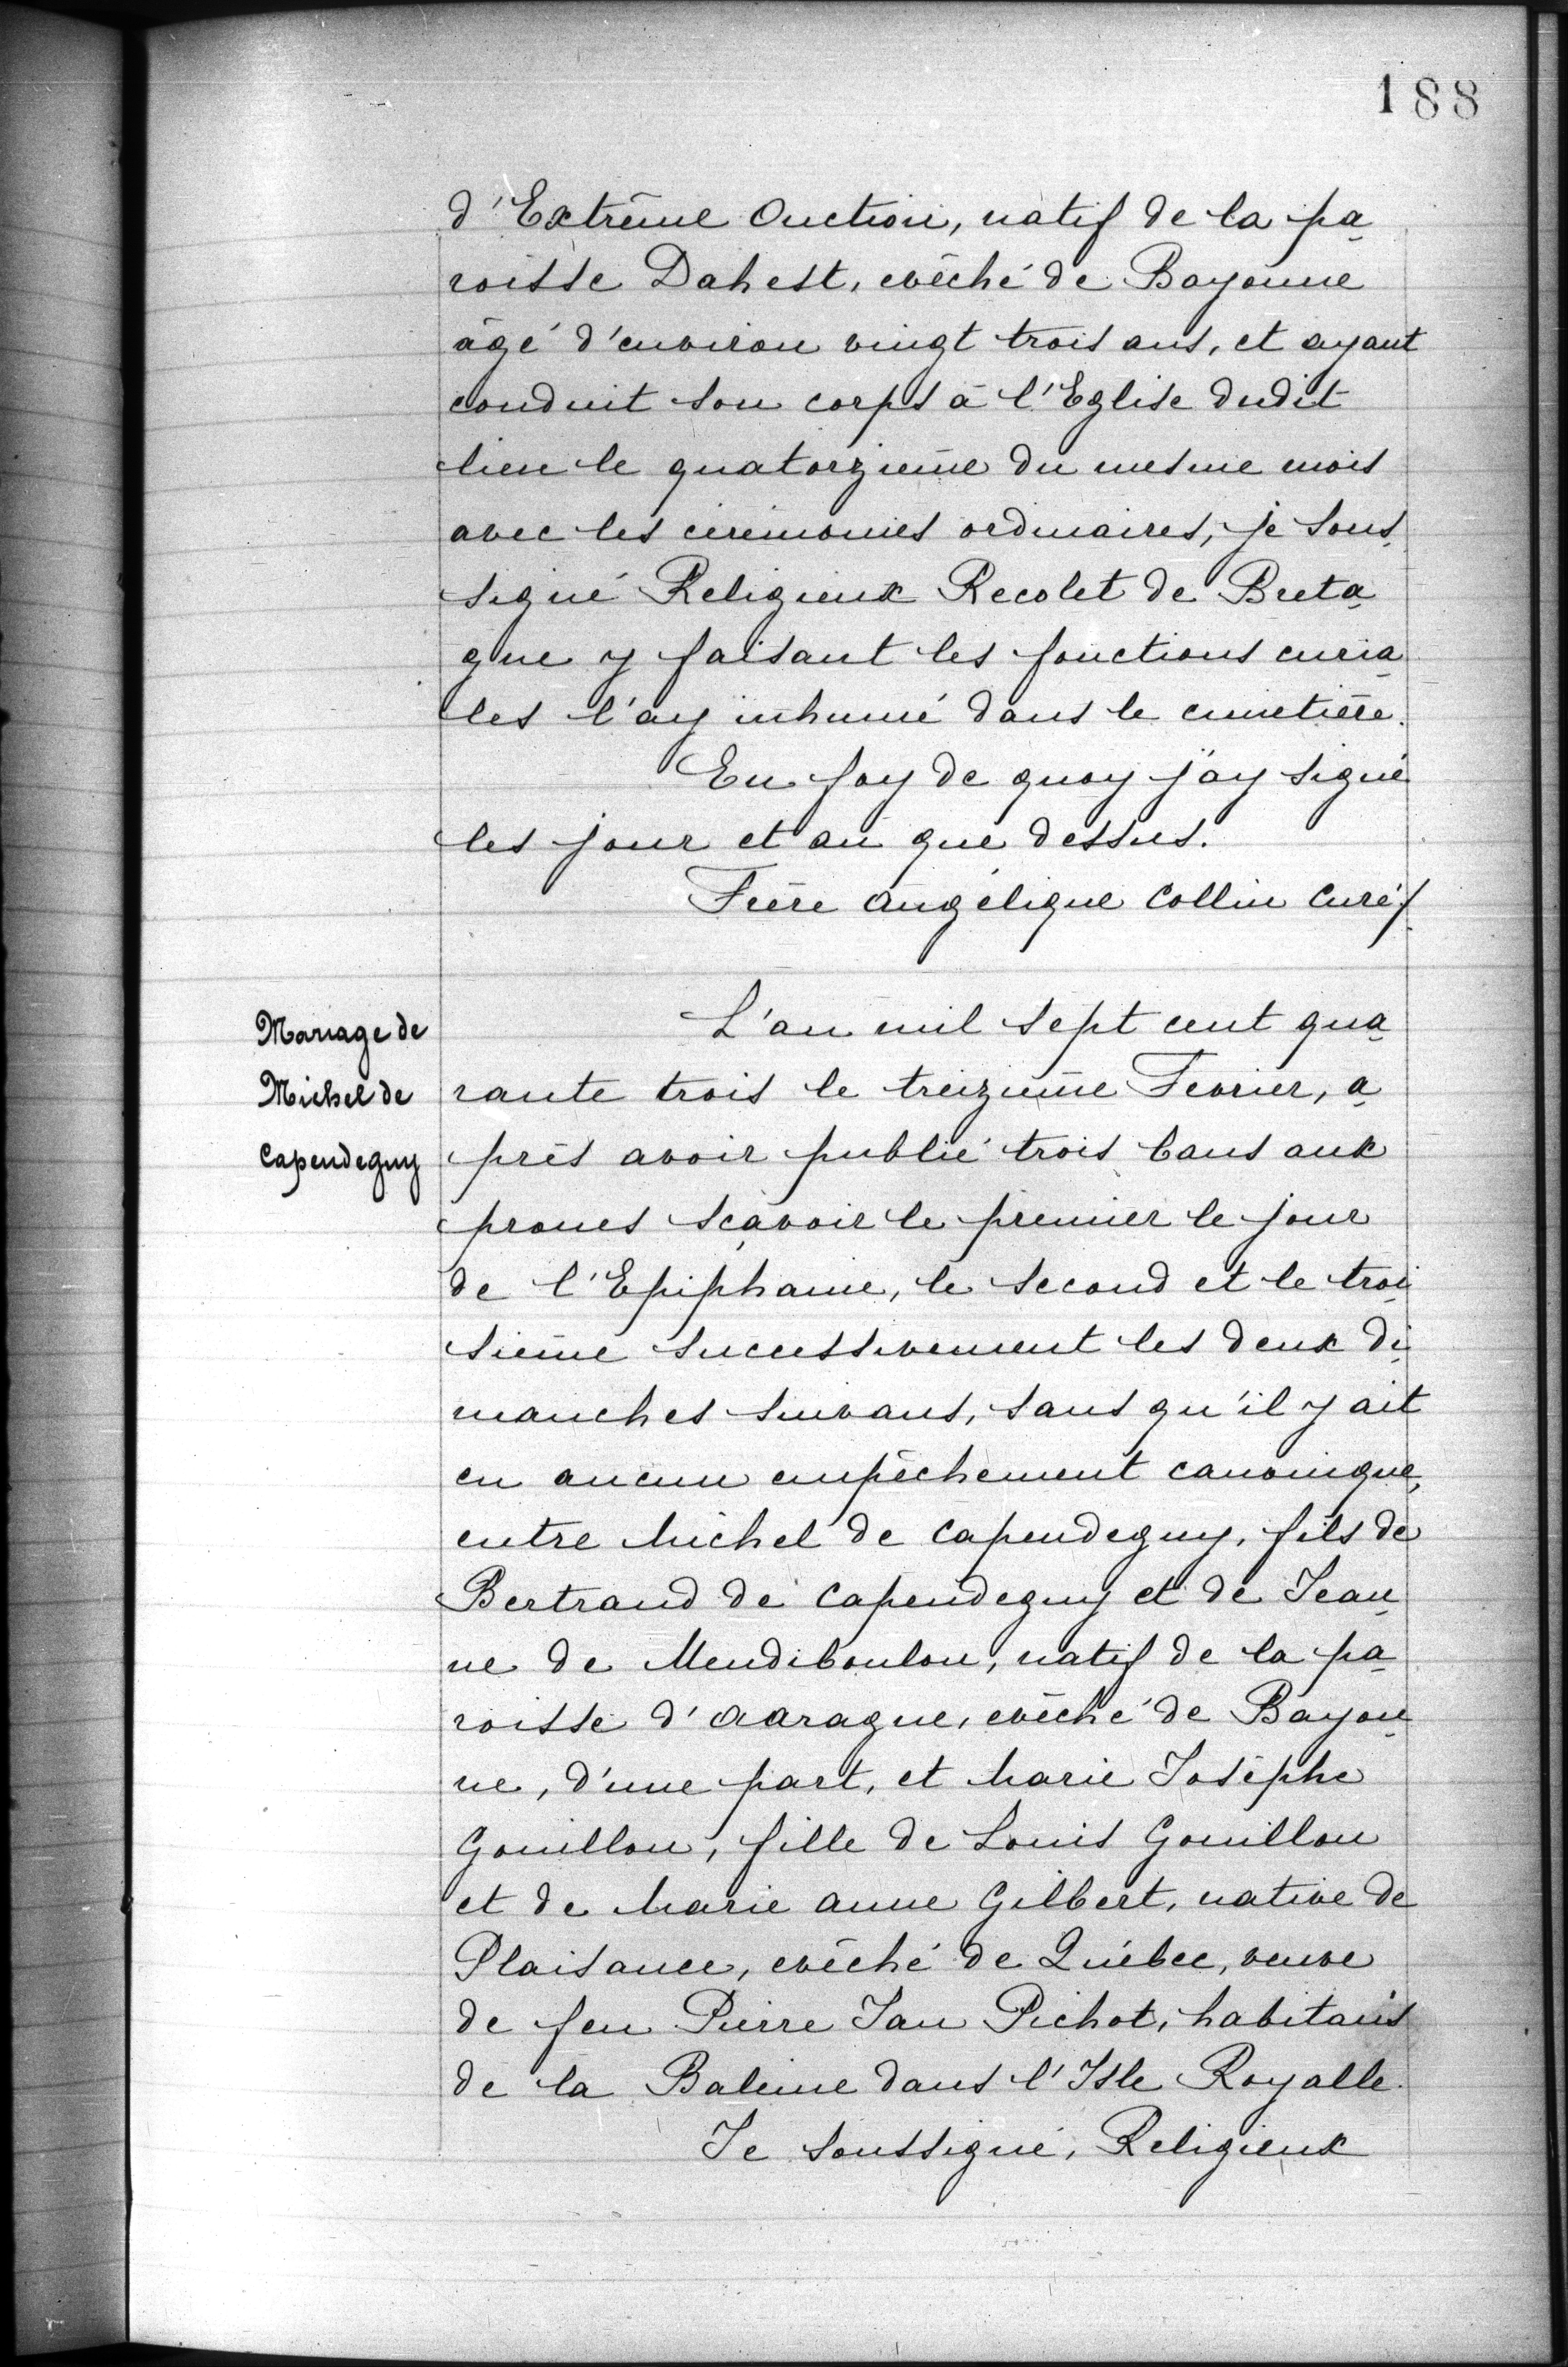 188
d'Extrême Onction, natif de la pa
roisse Dahest, evêché de Bayonne
âgé d'environ vingt trois ans, et ayant
conduit son corps à l'Eglise dudit
lieu le quatorzieme du mesme mois
avec les ceremonies ordinaires, je sous
signé Religieux Recolet de Breta
gne y faisant les fonctions curia
les l'ay inhumé dans le cimetière.
En foy de quoy j'ay signé
les jour et an que dessus.
Frère Angélique Collin Curé
Mariage de
Michel de
Capendeguy
L'an mil sept cent qua
rante trois le treizieme Fevrier, a
près avoir publié trois bans aux
prones sçavoir le premier le jour
de l'Epiphanie, le second et le troi
sieme successivement les deux di
manches suivans, sans qu'il y ait
eu aucun empêchement canonique,
entre Michel de Capendeguy, fils de
Bertrand de Capendeguy et de Jean
ne de Mendiboulou, natif de la pa
roisse d'Aarague, evêché de Bayon
ne, d'une part, et Marie Josèphe
Gouillon, fille de Louis Gouillon
et de Marie Anne Gilbert, native de
Plaisance, evêché de Québec, veuve
de feu Pierre Jan Pichot, habitans
de la Baleine dans l'Isle Royalle.
Je soussigné, Religieux